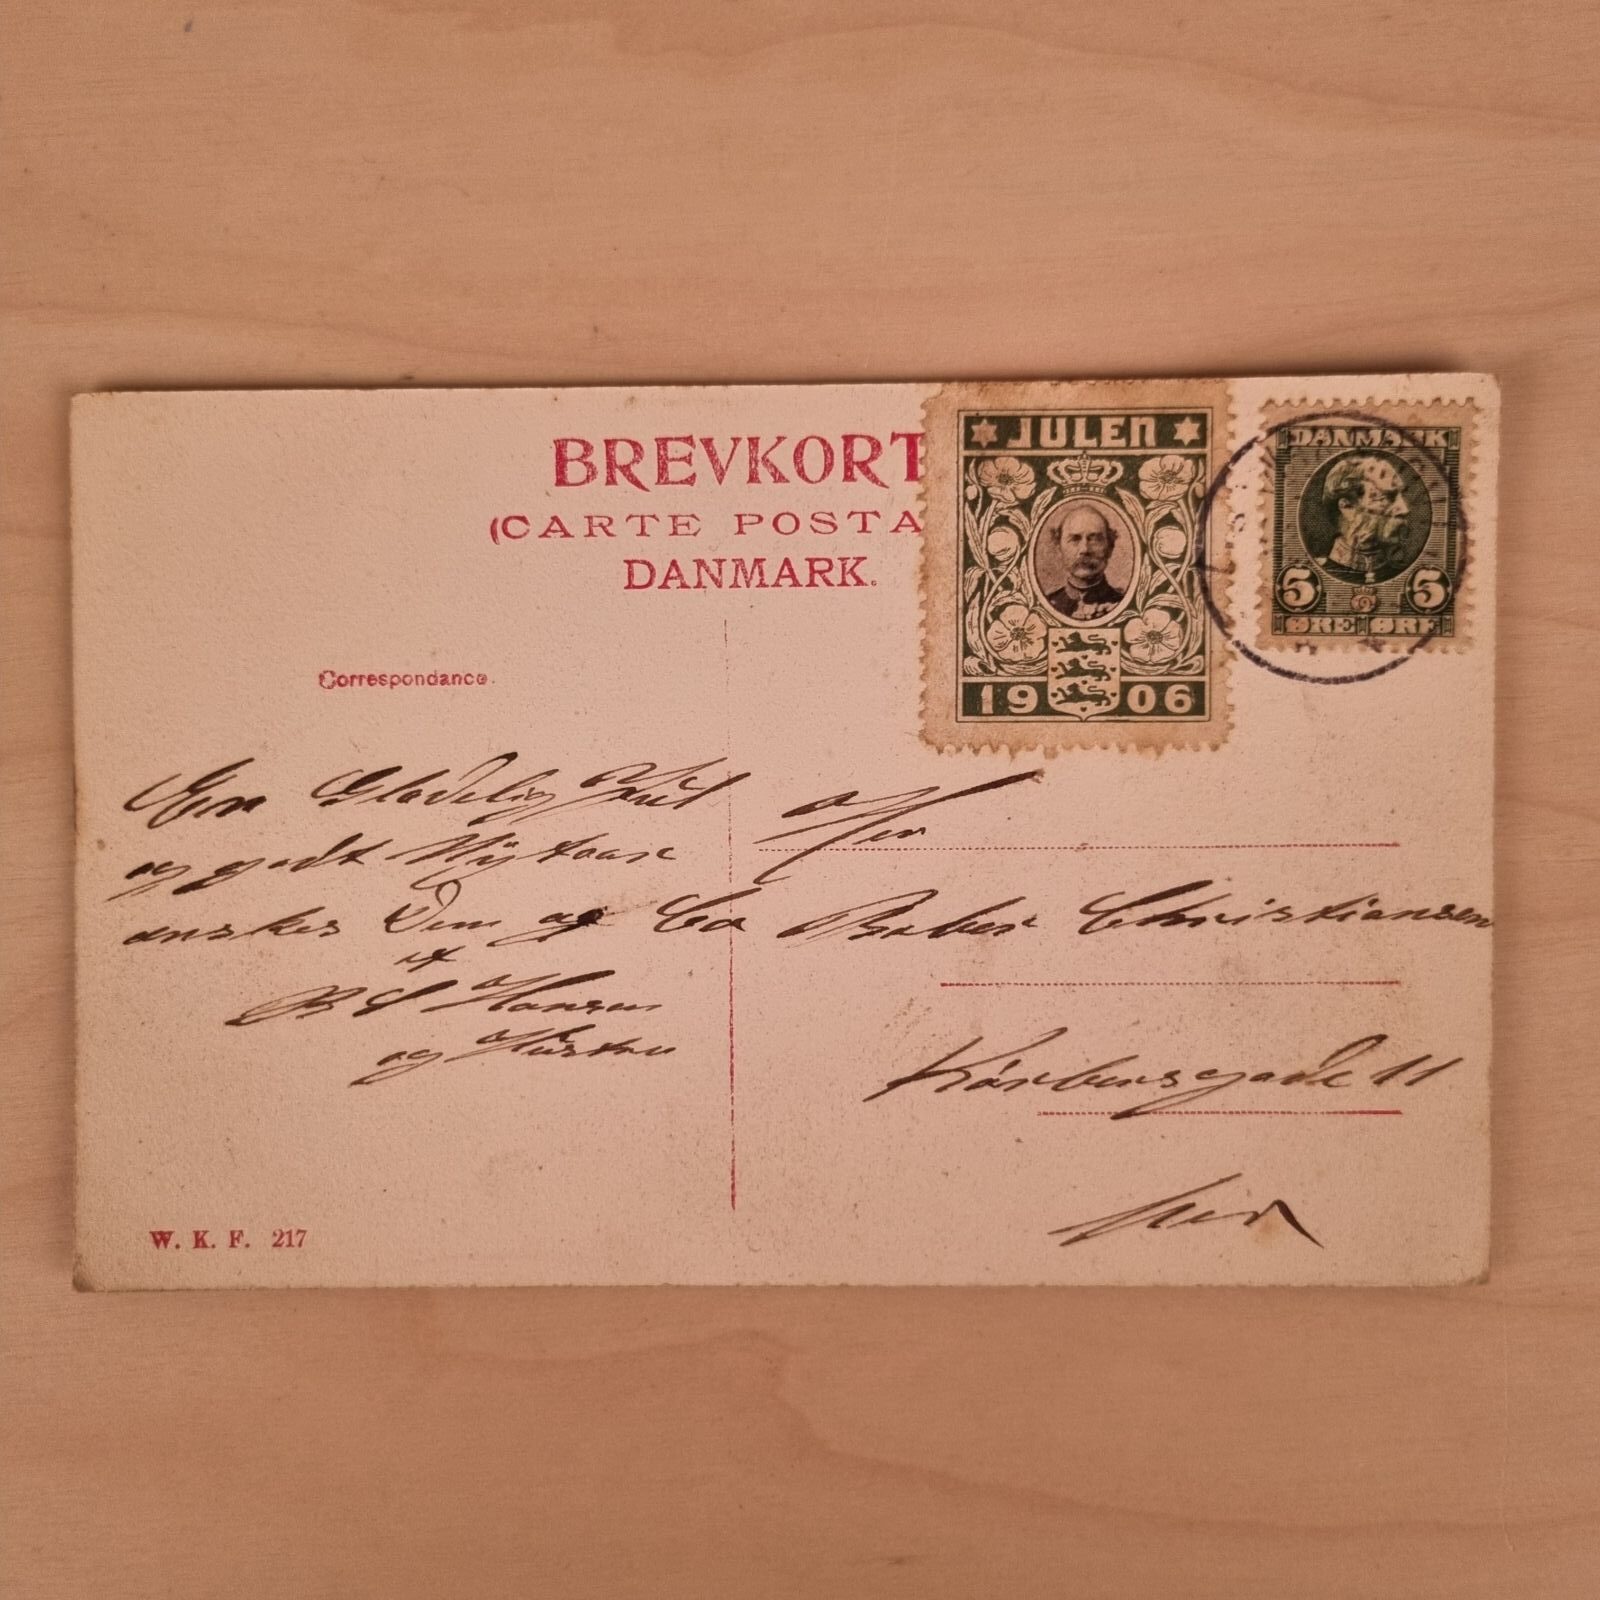 BREVKORT
(CARTE POSTA
DANMARK.
JULEN
1906
DANMARK
5 5
ØRE ØRE
Correspondance.
En Glædelig Jul
og godt Nÿtaar
ønskes Dem og
Hansen
og Hüstru
Her
Christiansen
11
her
W. K. F. 217